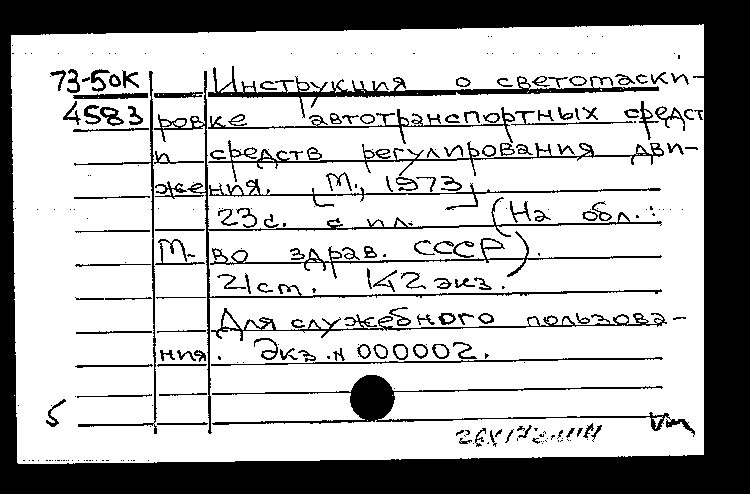 73-5ок Инструкция о светомаски-
4583 ровке автотранспортных средст
и средств регулирования дви-
жения. [М., 1973].
23с. с ил. (На обл.:
М-во здрав. СССР).
21см. К2 экз.
Для служебного пользова-
ния. Экз. N 000002.
5